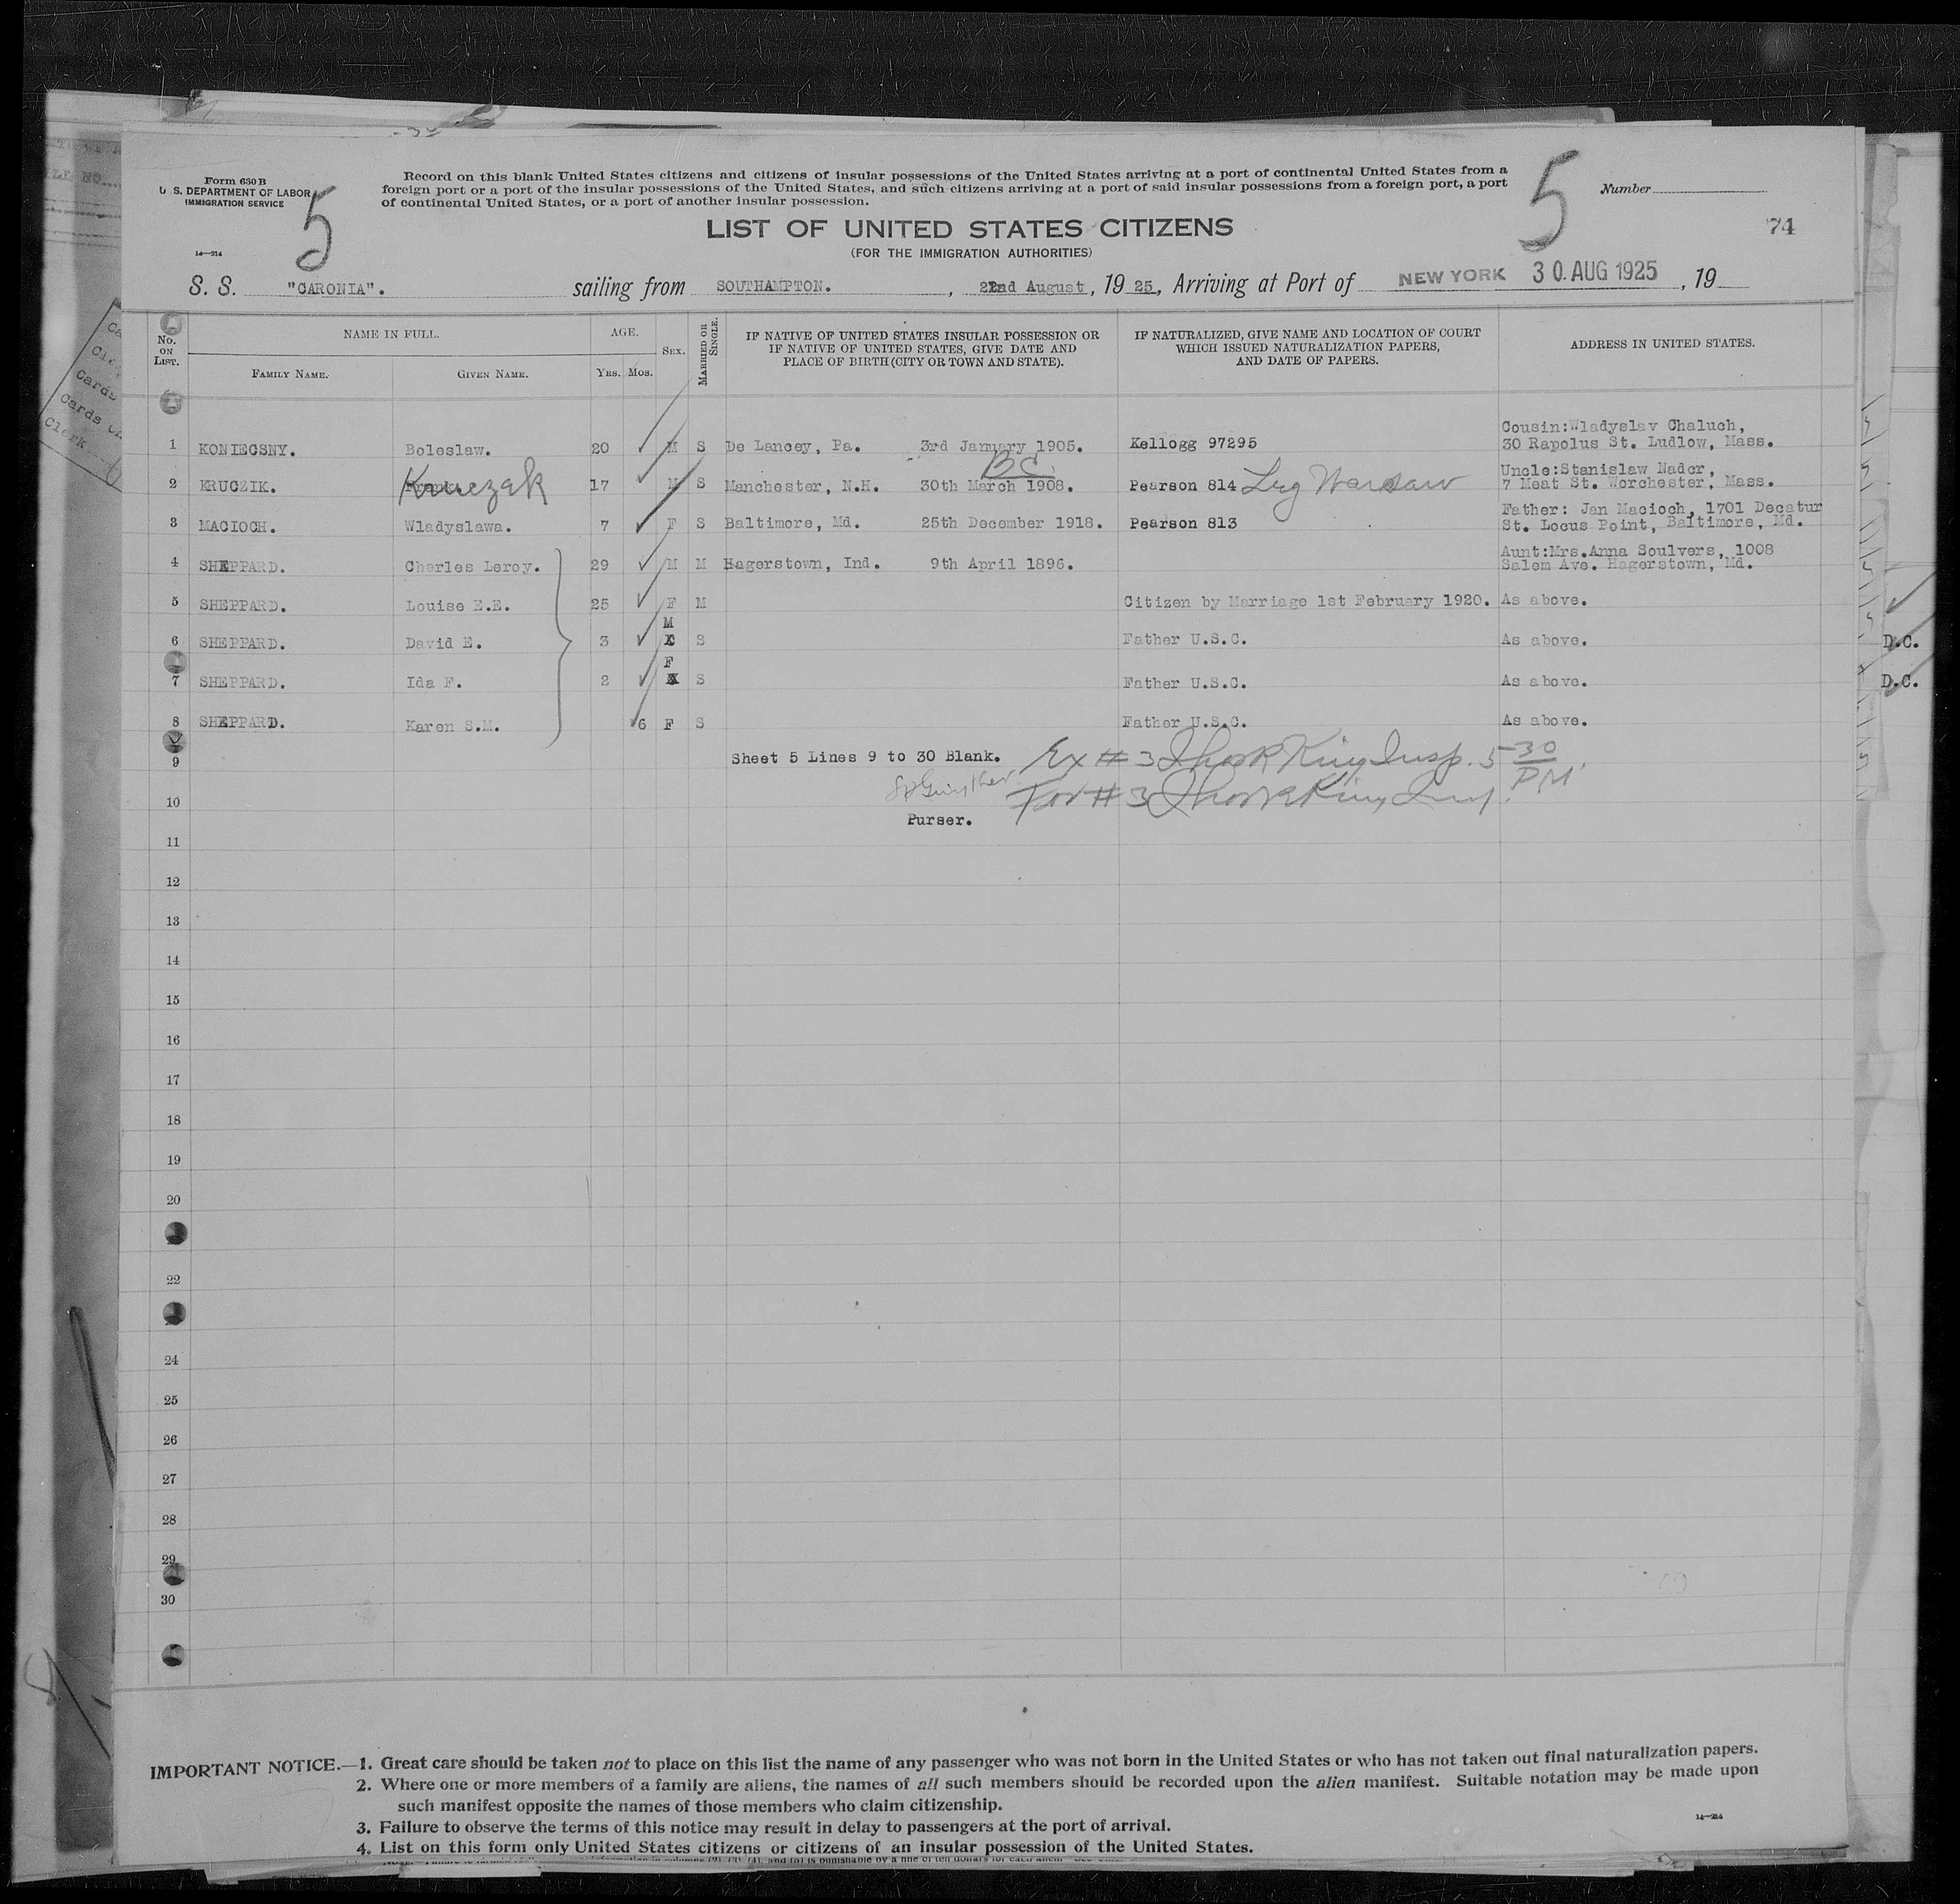 Form 630 B
U. S. DEPARTMENT OF LABOR
IMMIGRATION SERVICE
14—214
5
Record on this blank United States citizens and citizens of insular possessions of the United States arriving at a port of continental United States from a
foreign port or a port of the insular possessions of the United States, and such citizens arriving at a port of said insular possessions from a foreign port, a port
of continental United States, or a port of another insular possession.
5
Number
74
LIST OF UNITED STATES CITIZENS
(FOR THE IMMIGRATION AUTHORITIES)
S. S. "CARONIA". sailing from SOUTHAMPTON. , 22nd August , 19 25, Arriving at Port of NEW YORK 30 AUG 1925 , 19
No. ON LIST.
NAME IN FULL.
FAMILY NAME. GIVEN NAME.
AGE.
YRS. MOS.
SEX.
MARRIED OR SINGLE.
IF NATIVE OF UNITED STATES INSULAR POSSESSION OR
IF NATIVE OF UNITED STATES, GIVE DATE AND
PLACE OF BIRTH (CITY OR TOWN AND STATE).
IF NATURALIZED, GIVE NAME AND LOCATION OF COURT
WHICH ISSUED NATURALIZATION PAPERS,
AND DATE OF PAPERS.
ADDRESS IN UNITED STATES.
Cousin:Wladyslav Chaluch,
1 KONIECSNY. Boleslaw. 20 M S De Lancey, Pa. 3rd January 1905. Kellogg 97295 30 Rapolus St. Ludlow, Mass.
BC.
Uncle:Stanislaw Nador,
2 KRUCZIK. Kruczak 17 M S Manchester, N.H. 30th March 1908. Pearson 814 Leg Warsaw 7 Meat St. Worchester, Mass.
Father: Jan Macioch, 1701 Decatur
3 MACIOCH. Wladyslawa. 7 F S Baltimore, Md. 25th December 1918. Pearson 813 St. Locus Point, Baltimore, Md.
Aunt:Mrs.Anna Soulvers, 1008
4 SHEPPARD. Charles Leroy. 29 M M Hagerstown, Ind. 9th April 1896. Salem Ave. Hagerstown, Md.
5 SHEPPARD. Louise E.E. 25 F M Citizen by Marriage 1st February 1920. As above.
6 SHEPPARD. David E. 3 M S Father U.S.C. As above. D.C.
7 SHEPPARD. Ida F. 2 F S Father U.S.C. As above. D.C.
8 SHEPPARD. Karen S.M. 6 F S Father U.S.C. As above.
9 Sheet 5 Lines 9 to 30 Blank. Ex # 3 King Insp. 5 30 PM
10 For # 3 King Insp.
Purser.
11
12
13
14
15
16
17
18
19
20
22
24
25
26
27
28
29
30
IMPORTANT NOTICE.—1. Great care should be taken not to place on this list the name of any passenger who was not born in the United States or who has not taken out final naturalization papers.
2. Where one or more members of a family are aliens, the names of all such members should be recorded upon the alien manifest. Suitable notation may be made upon
such manifest opposite the names of those members who claim citizenship.
3. Failure to observe the terms of this notice may result in delay to passengers at the port of arrival.
4. List on this form only United States citizens or citizens of an insular possession of the United States.
14—214